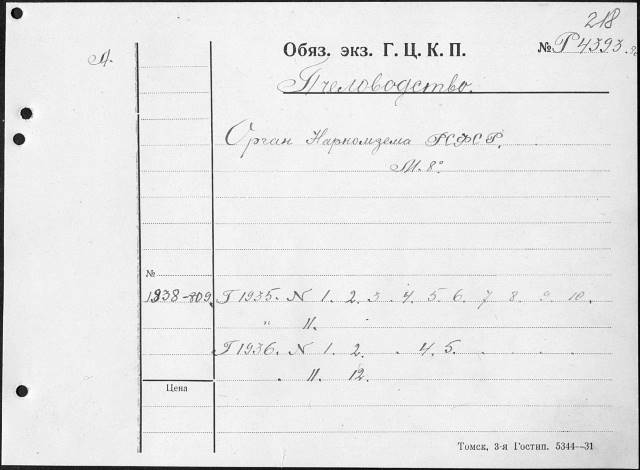 218
А.
Обяз. экз. Г. Ц. К. П. № Р4393
Пчеловодство.
Орган Наркомзема РСФСР.
М. 8°
№
1938-809. Г 1935. N 1. 2. 3. 4. 5. 6. 7 8. 9. 10.
" 11.
Г 1936. N 1. 2. . 4. 5.
. 11. 12.
Цена
Томск, 3-я Гостип. 5344—31